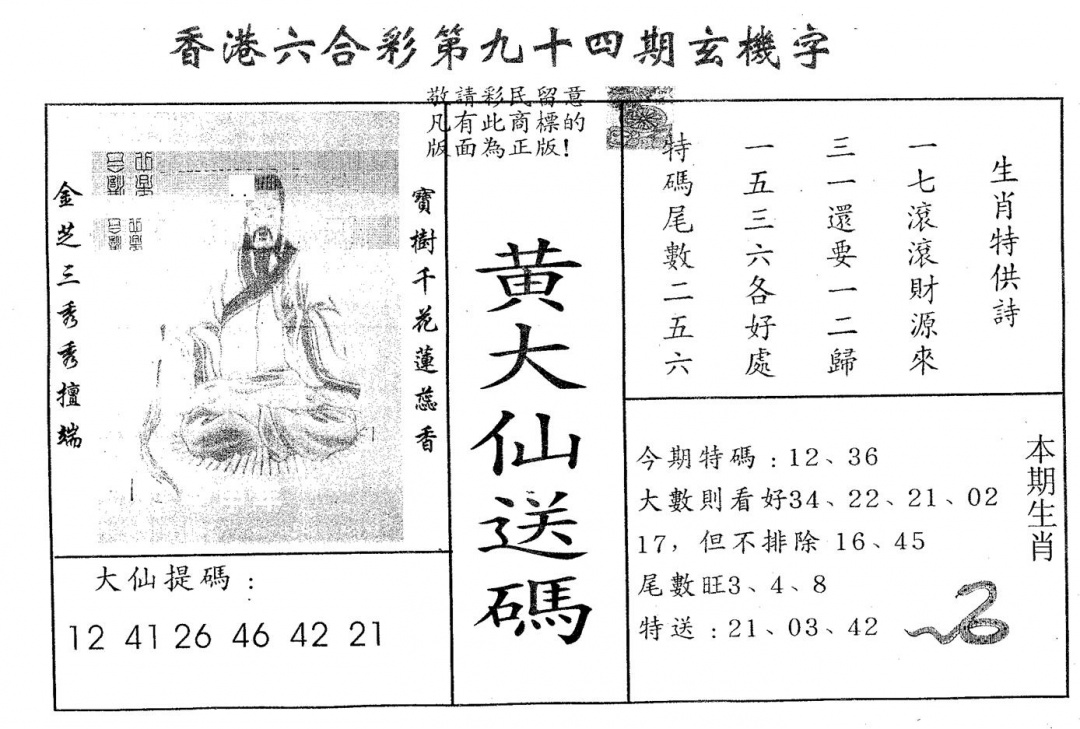 香港六合彩第九十四期玄機字
敬請彩民留意
凡有此商標的
版面為正版！
金芝三秀秀擅端
寶樹千花蓮蕊香
大仙提碼：
12 41 26 46 42 21
黃大仙送碼
生肖特供詩
一七滾滾財源來
三一還要一二歸
一五三六各好處
特碼尾數二五六
本期生肖
今期特碼：12、36
大數則看好34、22、21、02
17，但不排除 16、45
尾數旺3、4、8
特送：21、03、42